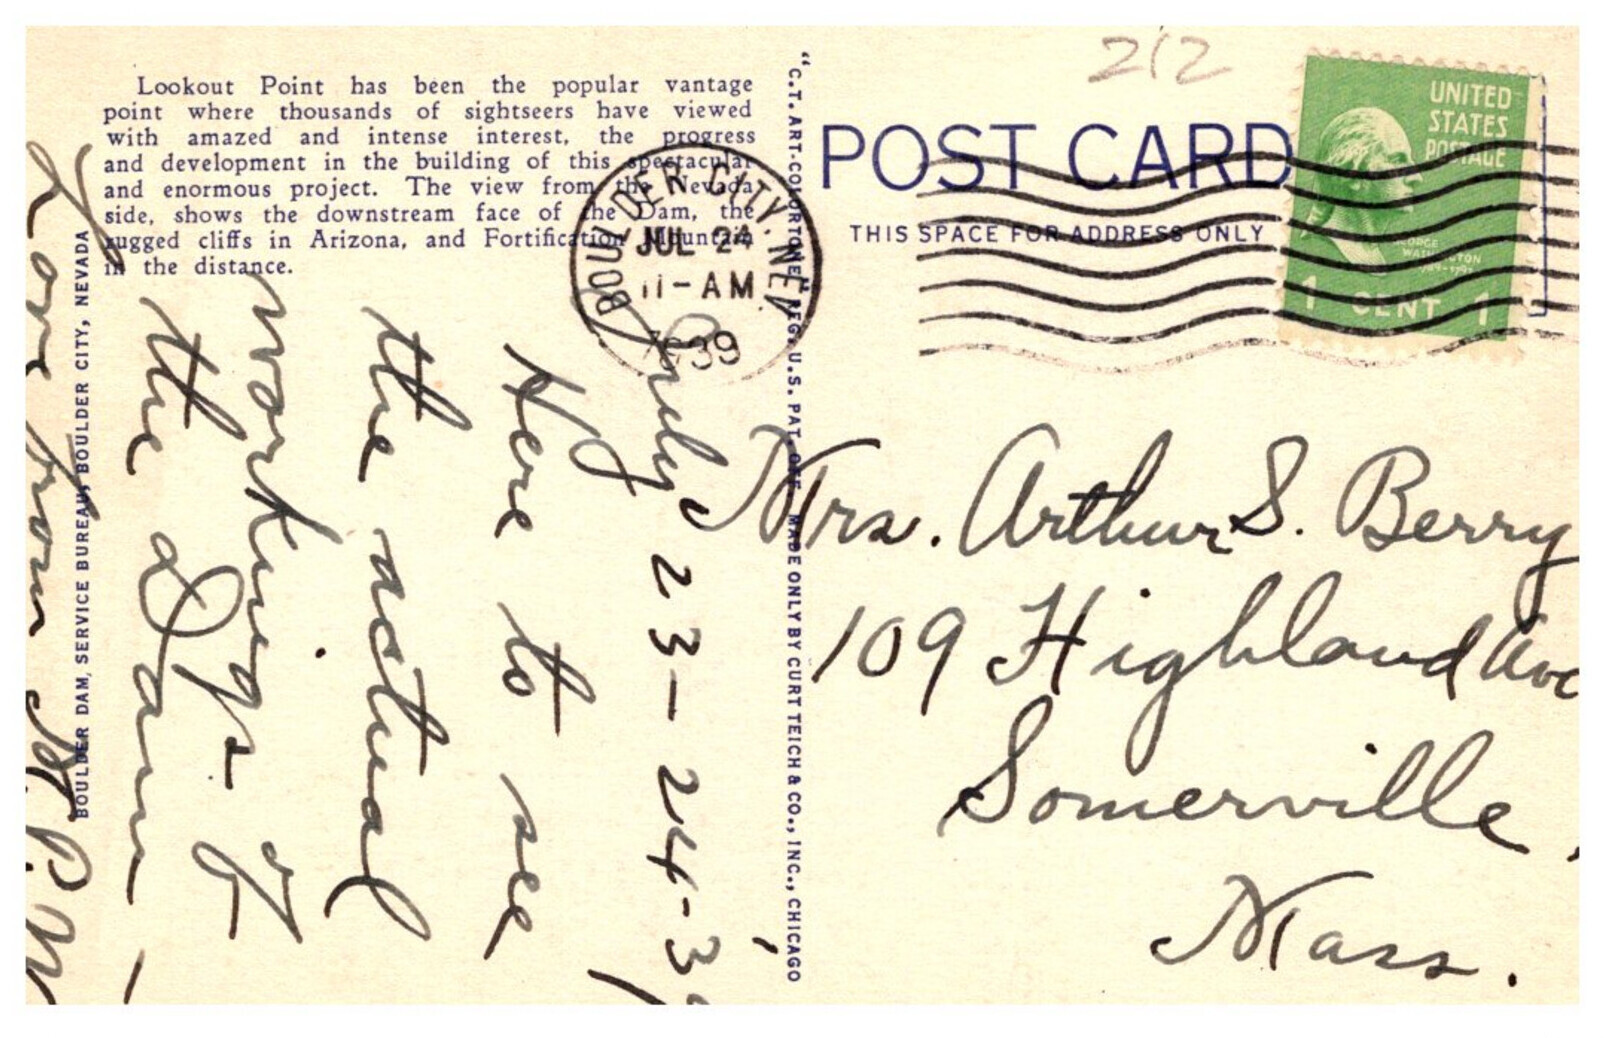 Lookout Point has been the popular vantage
point where thousands of sightseers have viewed
with amazed and intense interest, the progress
and development in the building of this spectacular
and enormous project. The view from the Nevada
side, shows the downstream face of the Dam, the
rugged cliffs in Arizona, and Fortification Mountain
in the distance.
BOULDER DAM, SERVICE BUREAU, BOULDER CITY, NEVADA
"C.T. ART-COLORTONE" REG. U.S. PAT. OFF. MADE ONLY BY CURT TEICH & CO., INC., CHICAGO
212
POST CARD
THIS SPACE FOR ADDRESS ONLY
UNITED
STATES
POSTAGE
GEORGE
WASHINGTON
1 CENT 1
BOULDER CITY. NEV.
JUL 24
11-AM
1939
July 23-24-39
Here to see
the actual
workings of
the Dam
Love from
Mrs. Arthur S. Berry
109 Highland Ave
Somerville,
Mass.